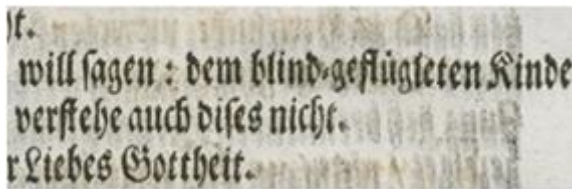 ht.
will sagen: dem blind-geflügleten Kinde
verstehe auch dises nicht.
r Liebes Gottheit.